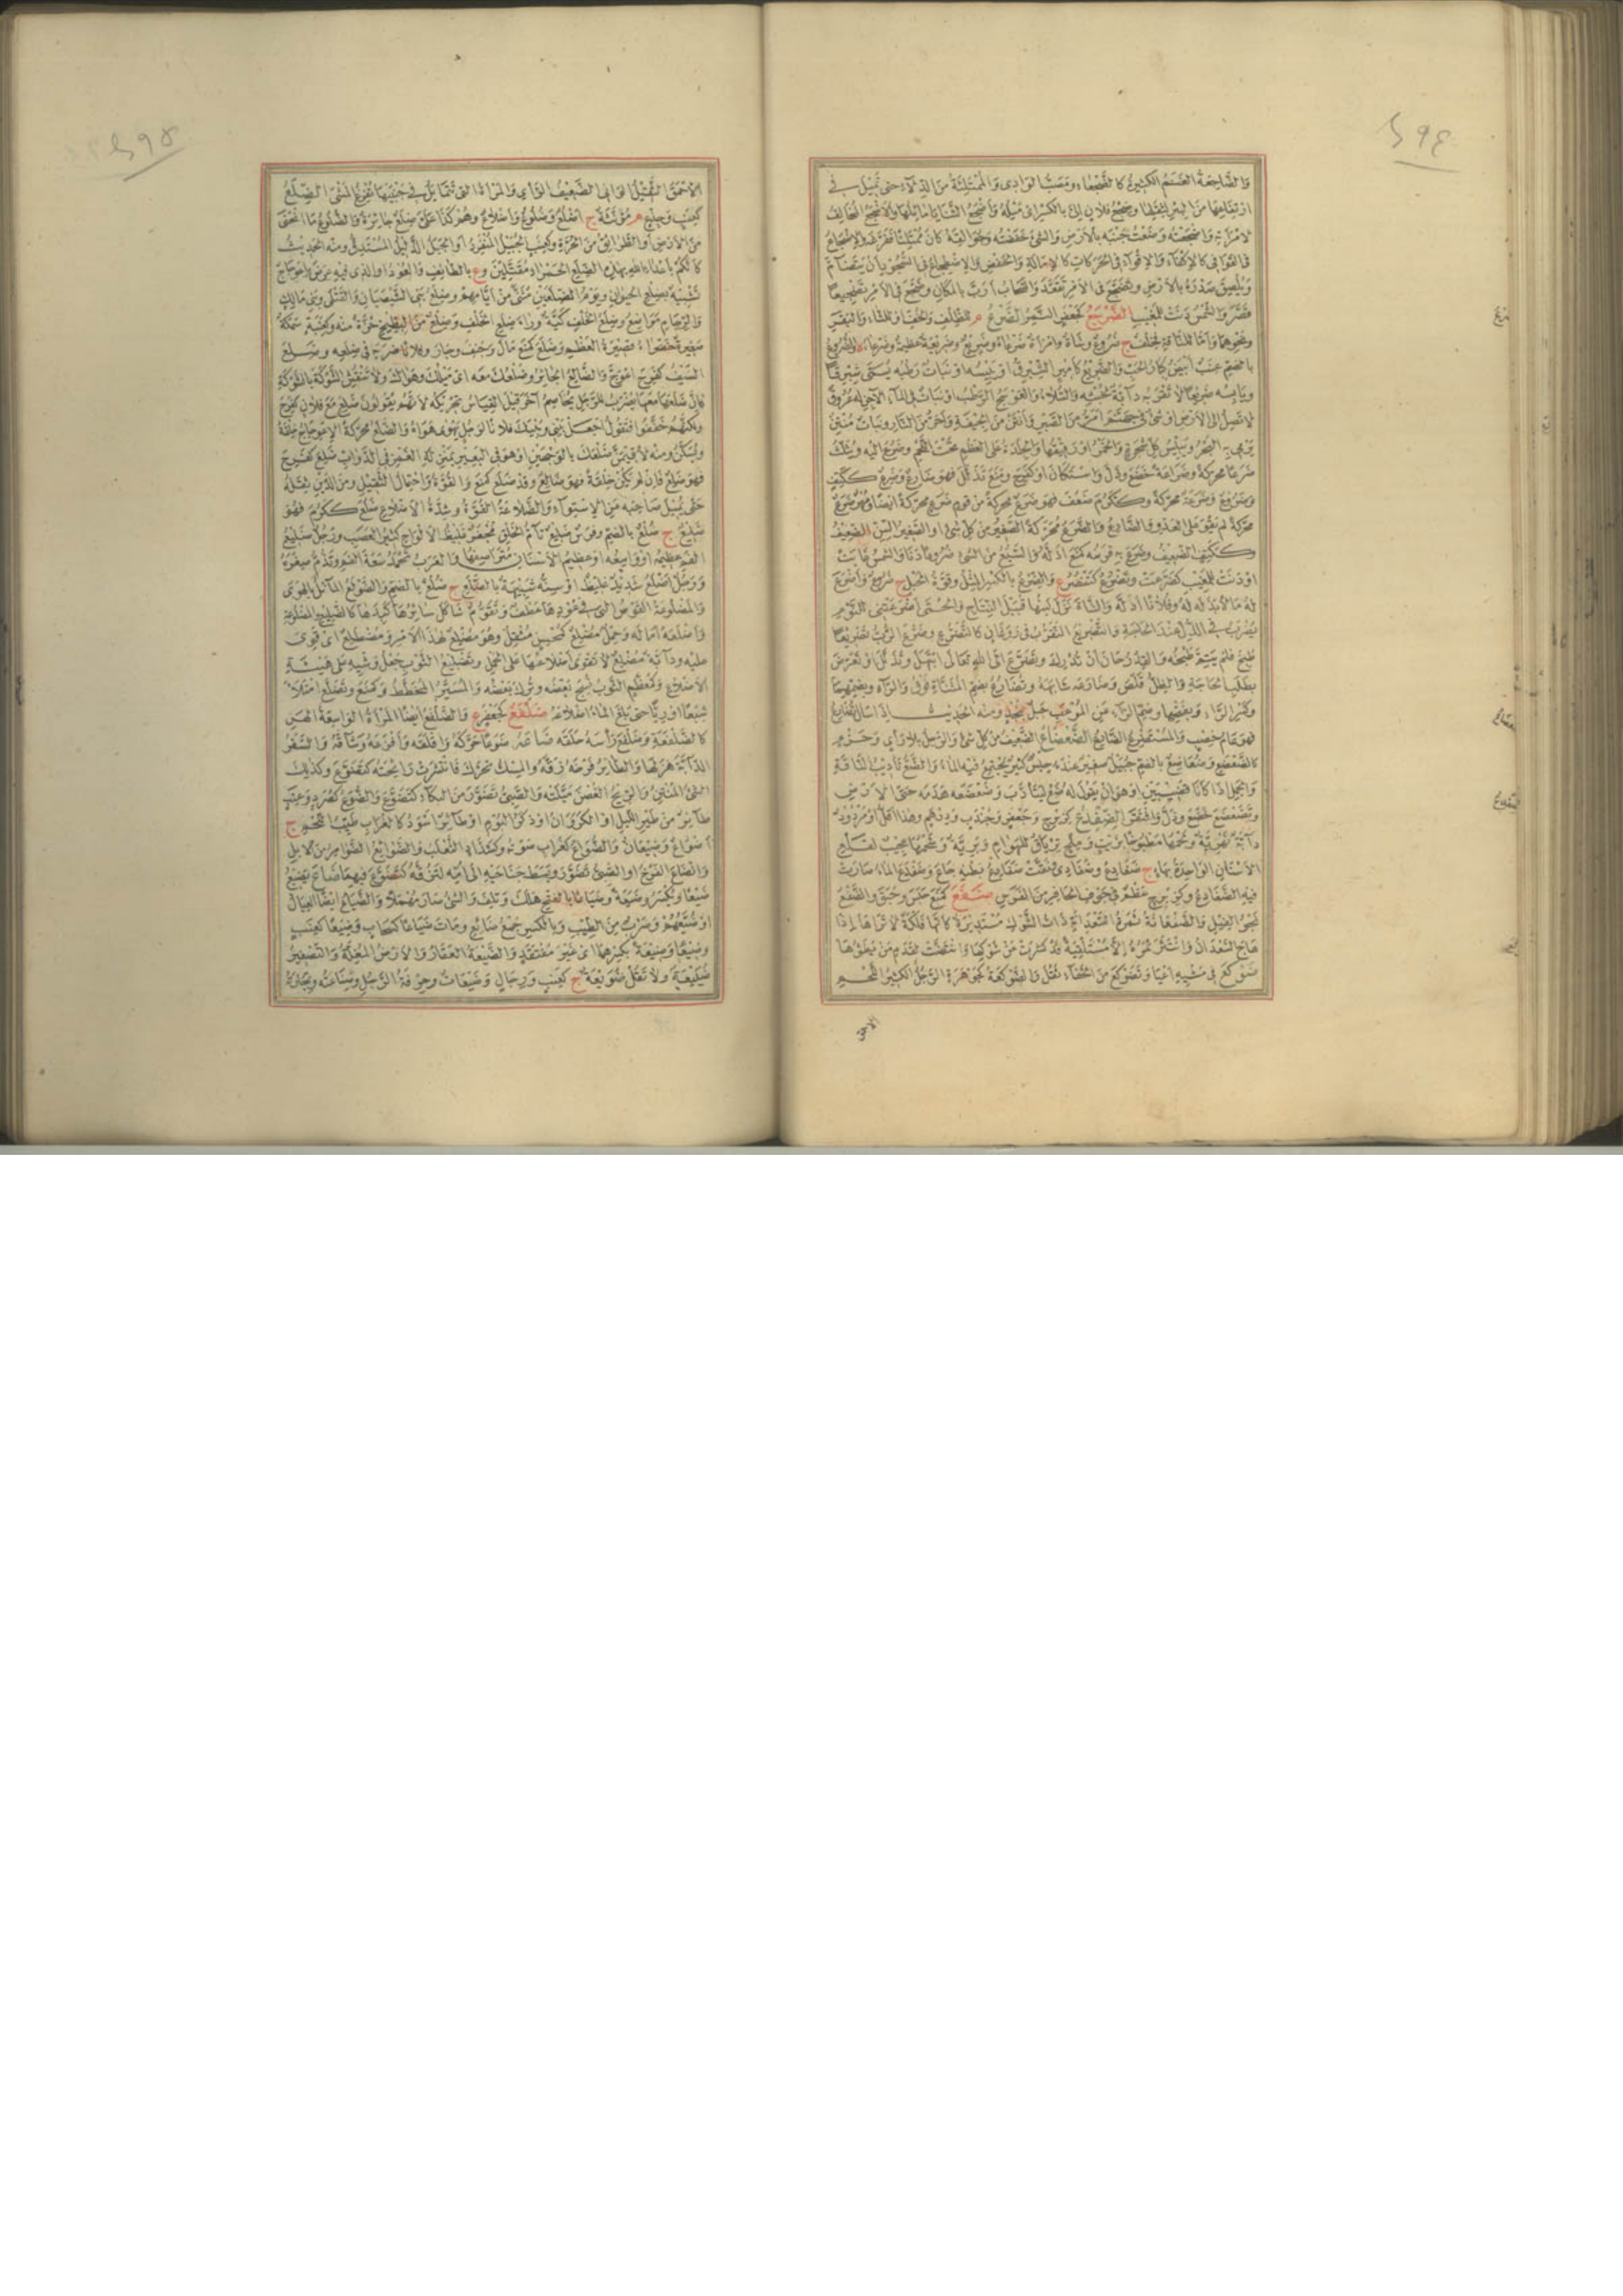 والضاجعة الغنم الكثيرة كالضجعاء ومصب الوادي والممتلئة من الدلاء حتى تميل في
ارتفاعها من البئر لثقلها وضجع فلان الي بالكسر اي ميله وأضجع الثنايا مائلها والاضجع المخالف
لامرأته واضجعته وضعت جنبه بالارض والشيء خفضته وجوالقه كان ممتلئا ففرغه والاضجاع
في القوافي كالاكفاء والاقواء وفي الحركات كالامالة والخفض والاضطجاع في السجود أن يتضام
ويلصق صدره بالارض وتضجع في الامر تقعد والسحاب أرب بالمكان وضجع في الامر تضجيعا
قصر والشمس دنت للمغيب الضرجع كجعفر النمر الضرع م للظلف والخف او للشاء والبقر
ونحوهما واما للناقة فخلف ج ضروع وشاة وامرأة ضرعاء وضريع وضريعة عظيمة
بالضم عنب أبيض كبار الحب والضريع كأمير الشبرق او يبيسه او نبات رطبه يسمى شبرقا
ويابسه ضريعا لا تقربه دابة لخبثه والسلاء والعوسج الرطب او نبات في الماء الآجن له عروق
لا تصل الى الارض او شيء في جهنم امر من الصبر وأنتن من الجيفة وأحر من النار ونبات منتن
يرمي به البحر ويبيس كل شجرة والخمر او رقيقها والجلدة على العظم تحت اللحم وضرع اليه ويثلث
ضرعا محركة وضراعة خضع وذل واستكان او كفرح ومنع تذلل فهو ضارع وضرع ككتف
وضروع وضرعة محركة وككرم ضعف فهو ضرع محركة من قوم ضرع محركة ايضا
محركة لم يقو على العدو والضارع والضرع محركة الصغير من كل شيء او الصغير السن الضعيف
وككتف الضعيف وضرع به فرسه كمنع اذله والسبع من الشيء ضروعا دنا والشمس غابت
او دنت للمغيب كضرعت وتضرع كتنصر ع والضرع بالكسر المثل وقوة الحبل ج ضروع وأضرع
له مالا بذله له وفلانا اذله والشاة نزل لبنها قبيل النتاج والحمى أضرعتني للنوم
يضرب في الذل عند الحاجة والتضريع التقرب في روغان كالتضرع وضرع الرب تضريعا
طبخ فلم يتم طبخه والقدر حان أن تدرك وتضرع الى الله تعالى ابتهل وتذلل او تعرض
بطلب الحاجة والظل قلص وضارعه شابهه وتضارع بضم المثناة فوق والراء وبضمهما
وكسر الراء وبفتحها وضم الراء عن الموعب جبل بنجد ومنه الحديث اذا سال تضارع
فهو عام خصب والمستضرع الضارع الضعضاع الضعيف من كل شيء والرجل بلا رأي وحزم
كالضعضع وضعاضع بالضم جبيل صغير عنده حبس كبير يجتمع فيه الماء والضع تأديب الناقة
والجمل اذا كانا قضيبين او هو أن يقول له ضع ليتأدب وضعضعه هدمه حتى الارض
وتضعضع خضع وذل وافتقر الضفدع كزبرج وجعفر وجندب ودرهم وهذا اقل او مردود
دابة نهرية ولحمها مطبوخا بزيت وملح ترياق للهوام وبرية وشحمها عجيب لقلع
الاسنان الواحدة بهاء ج ضفادع وضفادي ونقت ضفادع بطنه جاع وضفدع الماء صارت
فيه الضفادع وكزبرج عظم في جوف الحافر من الفرس ضفع كمنع جعس وحبق والضفع
نجو الفيل والضفعانة ثمرة السعدانة ذات الشوك مستديرة كانها فلكة لا تراها اذا
هاج السعدان وانتثر ثمره الا مستلقية قد كشرت عن شوكها وانتصت لقدم من يطؤها
ضوكع في مشيه اعيا وتضوكع من الخفاء ثقل والضوكعة كجوهرة الرجل الكثير اللحم
الاحمق
الاحمق الثقيل الواني الضعيف الرأي والمرأة التي تتمايل في جنبيها تفرغ المشي الضلع
كعنب وجذع م مؤنثة ج اضلع وضلوع واضلاع وهم كذا علي ضلع جائرة والضلوع ما انحنى
من الارض او الطرائق من الحرة وكعنب الجبيل المنفرد او الجبل الذليل المستدق ومنه الحديث
كانكم باعداء الله بهذه الضلع الحمراء مقتلين وع بالطائف والعود او الذي فيه عرض واعوجاج
تشبيه بضلع الحيوان ويوم الضلعين مثنى من ايامهم وضلع بني الشيصبان والقتلى وبني مالك
والرجام مواضع وضلع الخلف كية وراء ضلع الخلف وضلع من البطيخ حزة منه وكعنبة سمكة
صغيرة خضراء قصيرة العظم وضلع كمنع مال وجنف وجار وفلانا ضربه في ضلعه وضلع
السيف كفرح اعوج والضالع الجائر وضلعك معه اي ميلك وهواك ولا تنقش الشوكة بالشوكة
فان ضلعها معها يضرب للرجل يخاصم آخر قيل القياس تحريكه لانهم يقولون ضلع مع فلان كفرح
ولكنهم خففوا فتقول اجعل بيني وبينك فلانا لرجل يهوى هواه والضلع محركة الاعوجاج خلقة
ويسكن ومنه لاقيمن ضلعك بالوجهين او هو في البعير بمنزلة الغمز في الدواب ضلع كفرح
فهو ضلع فان لم يكن خلقة فهو ضالع وقد ضلع كمنع والقوة واحتمال الثقيل ومن الدين ثقله
حتى يميل صاحبه عن الاستواء والضلاعة القوة وشدة الاضلاع ضلع ككرم فهو
ضليع ج ضلع بالضم وفرس ضليع تام الخلق مجفر غليظ الالواح كثير العصب ورجل ضليع
الفم عظيمه او واسعه او عظيم الاسنان متراصفها والعرب تحمد سعة الفم وتذم صغره
ورجل اضلع شديد غليظ او سنه شبيهة بالضلع ج ضلع بالضم والضولع المائل بالهوى
والمضلوعة القوس التي في عودها عطف وتقوم شاكل سائرها كبدها كالضليع والمضلعة
واضلعه اماله وحمل مضلع كمحسن مثقل وهو مضلع لهذا الامر ومضطلع اي قوي
عليه ودابة مضلع لا تقوى اضلاعها على الحمل وتضليع الثوب جعل وشيه على هيئة
الاضلاع وكمعظم الثوب نسج بعضه وترك بعضه والمسير المخطط وكمنع وتضلع امتلأ
شبعا او ريا حتى بلغ الماء اضلاعه ضلفع كجعفر ع والضلفع ايضا المرأة الواسعة الهن
كالضلفعة وضلفع رأسه حلقه ضاعه ضوعا حركه واقلقه وأفزعه وشاقه والسفر
الدابة هزلها والطائر فرخه زقه والمسك تحرك فانتشرت رائحته كتضوع وكذلك
الشيء المنتن والريح الغصن ميلته والصبي تضور من البكاء كتضوع والضوع كصرد وعنب
طائر من طير الليل او الكروان او ذكر البوم او طائر اسود كالغراب طيب اللحم ج
اضواع وضيعان والضواع كغراب صوته وكشداد الثعلب والضوائع الضوامر من الابل
وانضاع الفرخ او الصبي تضور وبسط جناحيه الى امه لتزقه كتضوع فيهما ضاع يضيع
ضيعا ويكسر وضيعة وضياعا بالفتح هلك وتلف والشيء صار مهملا والضياع ايضا العيال
او ضيعهم وضرب من الطيب وبالكسر جمع ضائع ومات ضياعا كسحاب وضيعا كعنب
وضيعا وضيعة بكسرهما اي غير مفتقد والضيعة العقار والارض المغلة والتصغير
ضييعة ولا تقل ضويعة ج كعنب ورجال وضيعات وحرفة الرجل وصناعته وتجارته